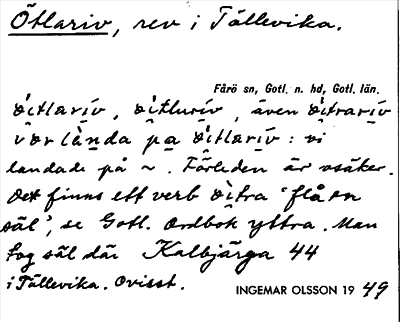 Ötlariv, rev i Tällevika.
Fårö sn, Gotl. n. hd, Gotl. län.
ö̀itlarīv, ö̀itlurīv, även ö̀itrarīv
vör lànda pa ö̀itlarīv: vi
landade på ~. Förleden är osäker.
Det finns ett verb ö̀itra 'flå en
säl', se Gotl. Ordbok yttra. Man
tog säl där Kalbjärga 44
i Tällevika. Ovisst.
INGEMAR OLSSON 1949